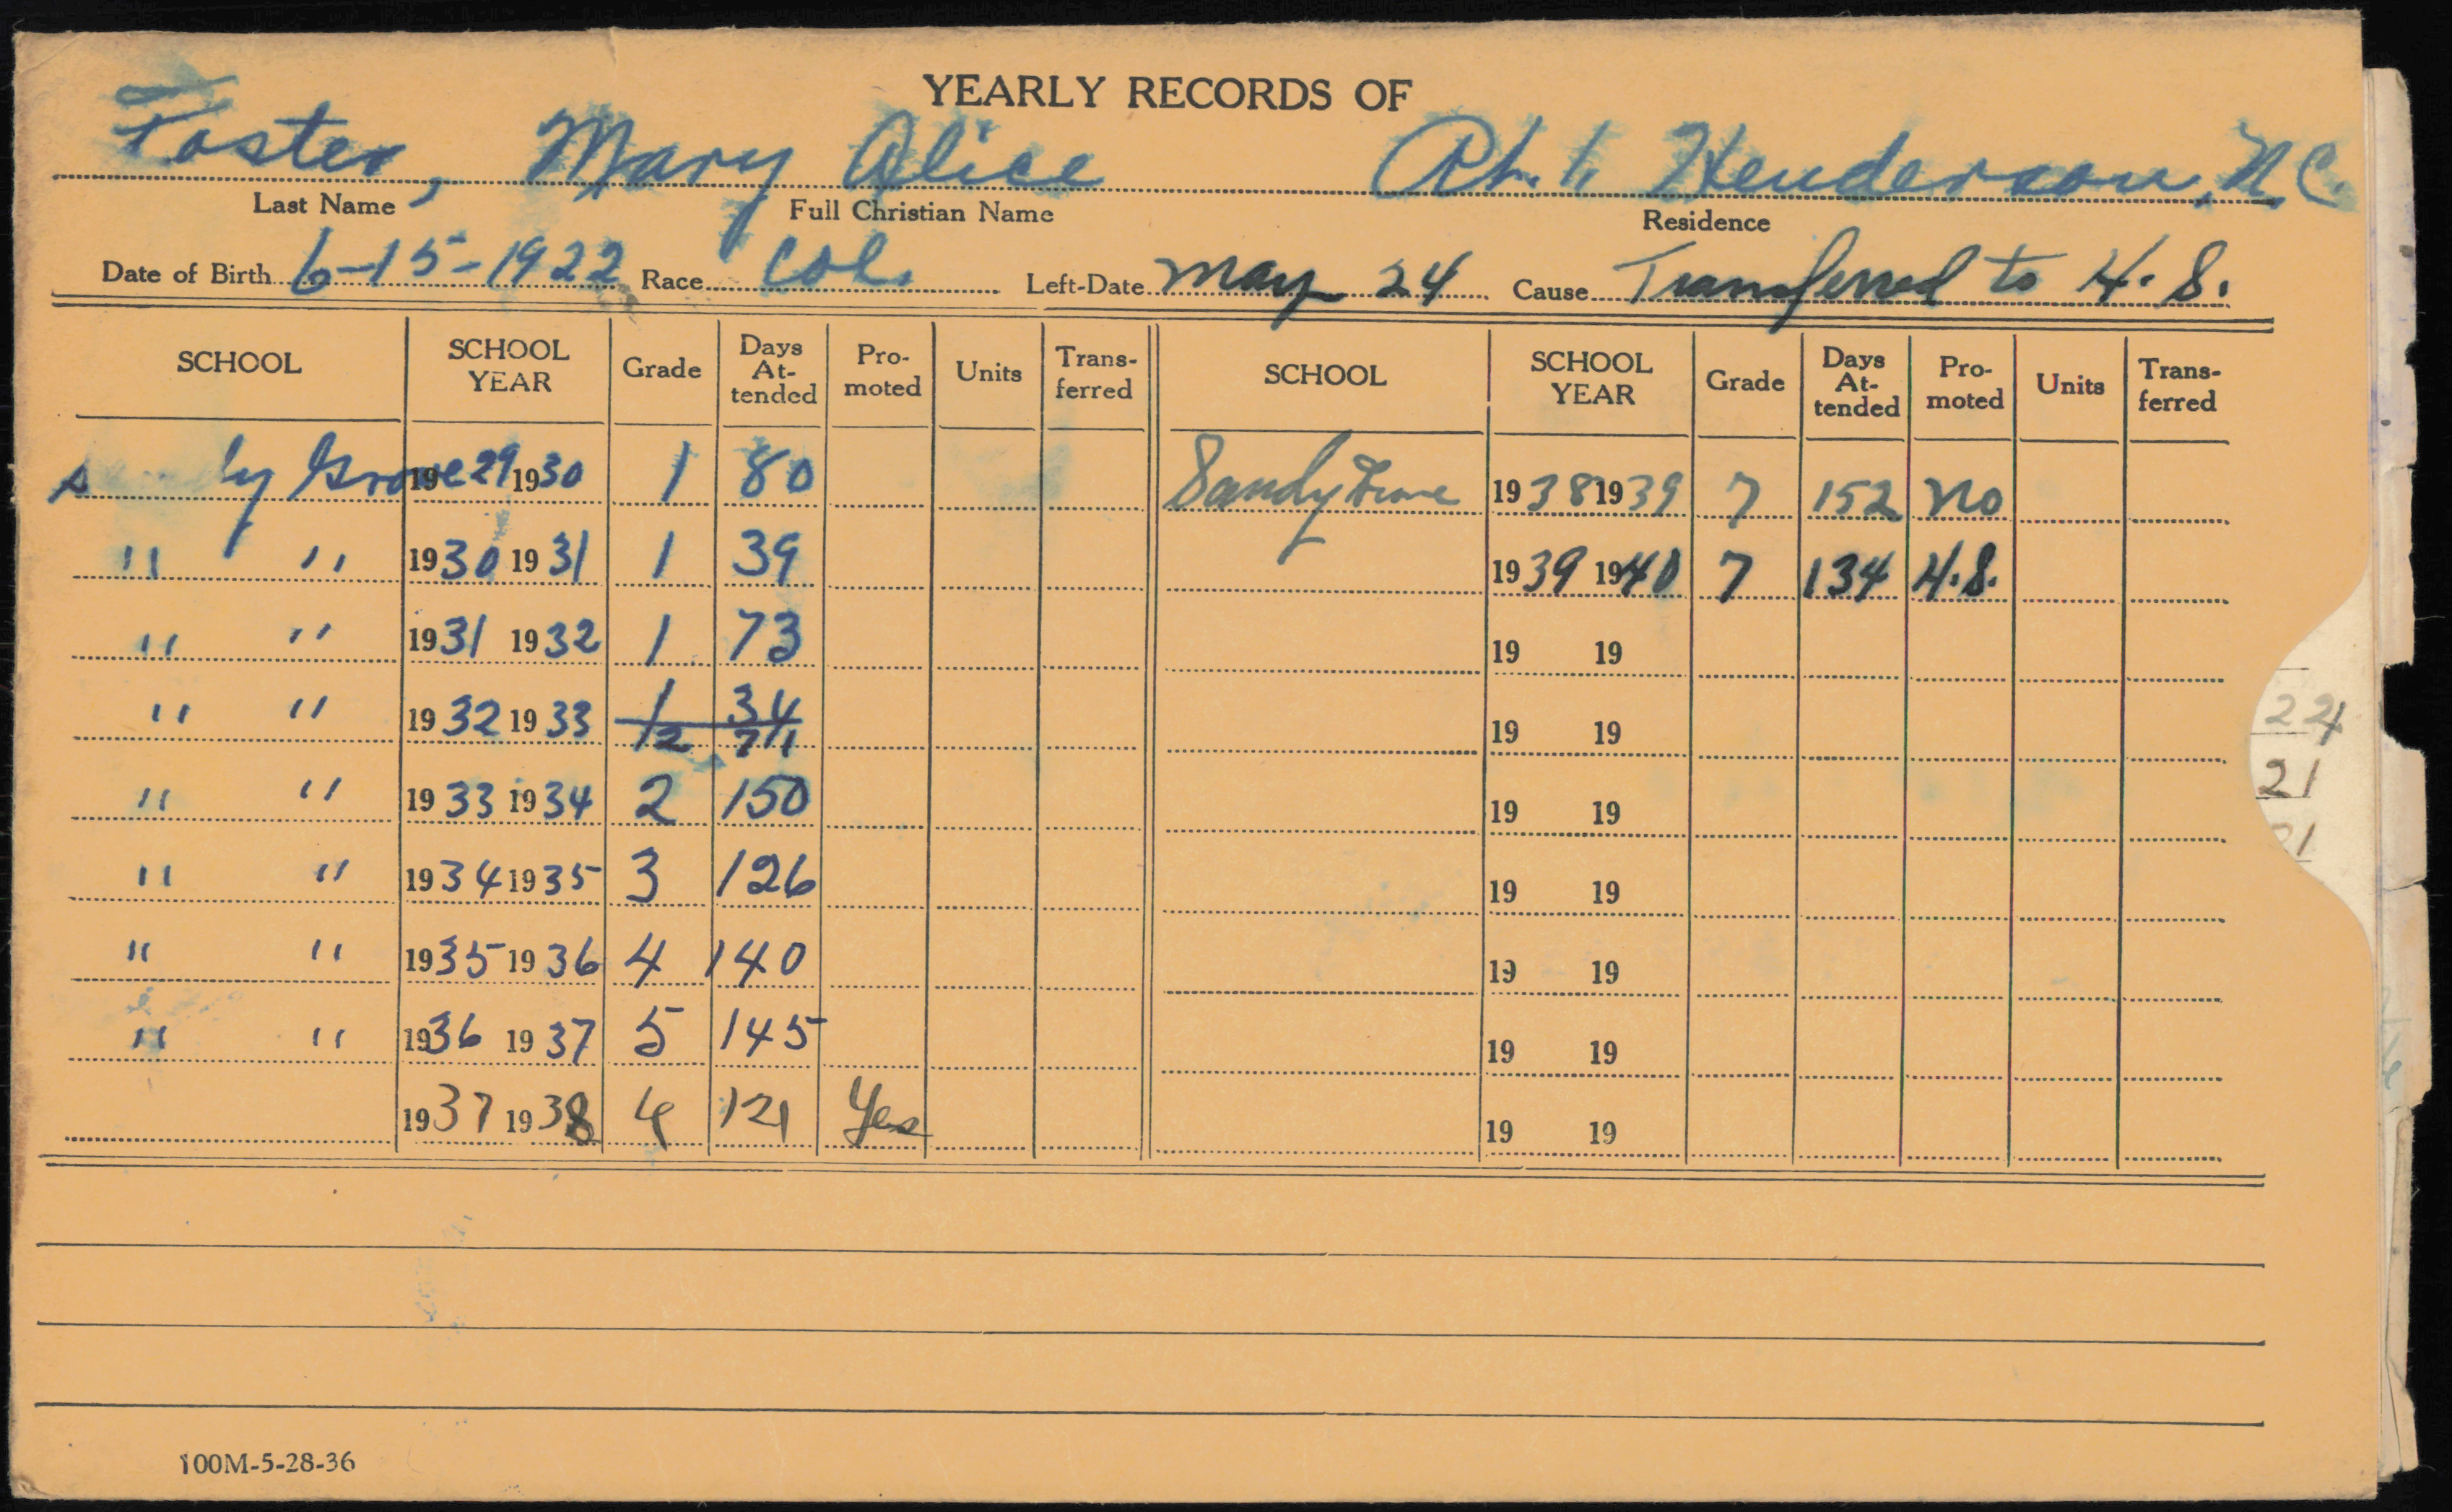 YEARLY RECORDS OF
Foster, Mary Alice Rt. 1. Henderson, N.C.
Last Name Full Christian Name Residence
Date of Birth 6-15-1922 Race Col. Left-Date May 24 Cause Transferred to H.S.
SCHOOL SCHOOL YEAR Grade Days At-tended Pro-moted Units Trans-ferred SCHOOL SCHOOL YEAR Grade Days At-tended Pro-moted Units Trans-ferred
Grove 1929 1930 1 80 Sandy Grove 1938 1939 7 152 No
" " 1930 1931 1 39 1939 1940 7 134 H.S.
" " 1931 1932 1 73 19 19
" " 1932 1933 1/2 34/71 19 19
" " 1933 1934 2 150 19 19
" " 1934 1935 3 126 19 19
" " 1935 1936 4 140 19 19
" " 1936 1937 5 145 19 19
1937 1938 121 Yes 19 19
24
21
100M-5-28-36